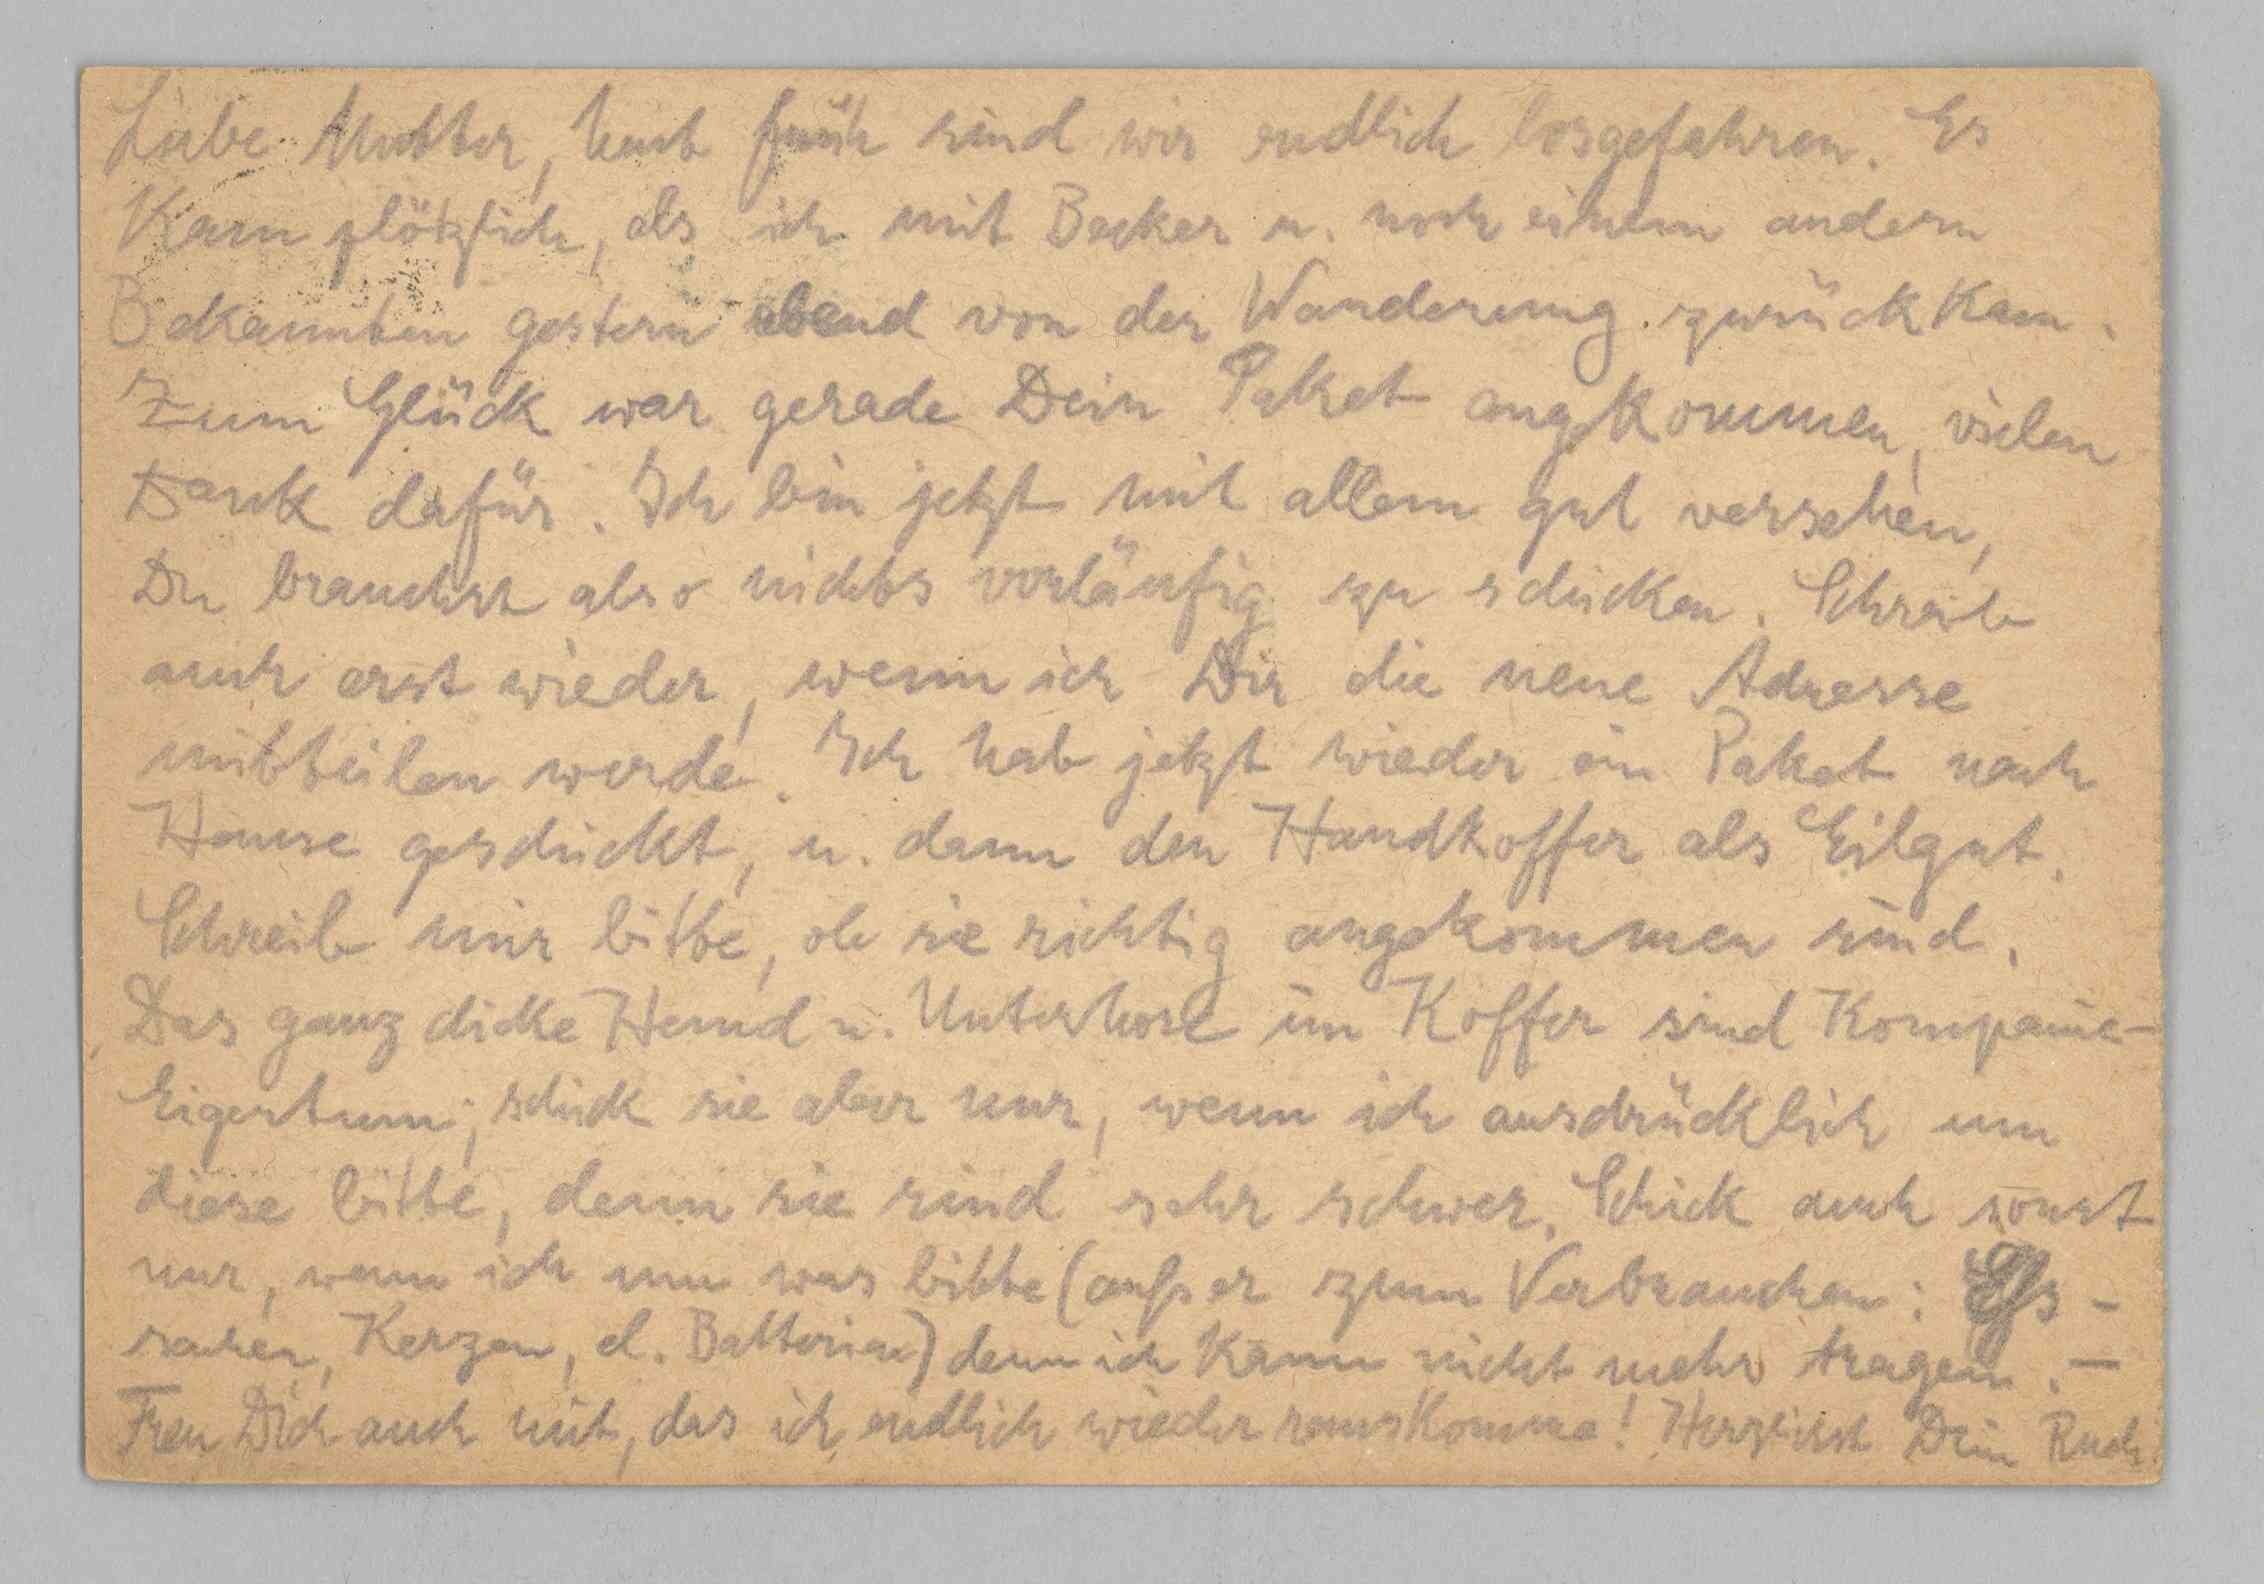 Liebe Mutter, heut früh sind wir endlich losgefahren. Es
kam plötzlich, als ich mit Becker u. noch einem andern
Bekannten gestern abend von der Wanderung zurückkam.
Zum Glück war gerade Dein Paket angekommen, vielen
Dank dafür. Ich bin jetzt mit allem gut versehen,
Du brauchst also nichts vorläufig zu schicken. Schreib
auch erst wieder, wenn ich Dir die neue Adresse
mitteilen werde. Ich hab jetzt wieder ein Paket nach
Hause geschickt, u. dann den Handkoffer als Eilgut.
Schreib mir bitte, ob sie richtig angekommen sind.
Das ganz dicke Hemd u. Unterhose im Koffer sind Kompanie-
Eigentum; schick sie aber nur, wenn ich ausdrücklich um
diese bitte, denn sie sind sehr schwer. Schick auch sonst
nur, wenn ich um was bitte (außer zum Verbrauchen: Eß-
sachen, Kerzen, el. Batterien) denn ich kann nicht mehr tragen. —
Freu Dich auch mit, das ich endlich wieder rauskomme! Herzlichst Dein